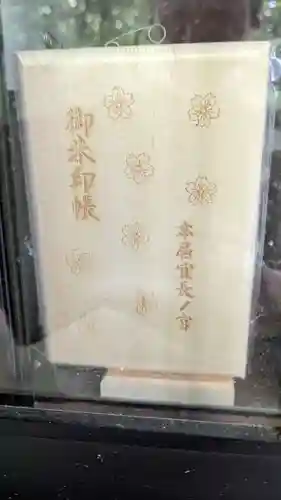 御朱印帳
本居宣長ノ宮